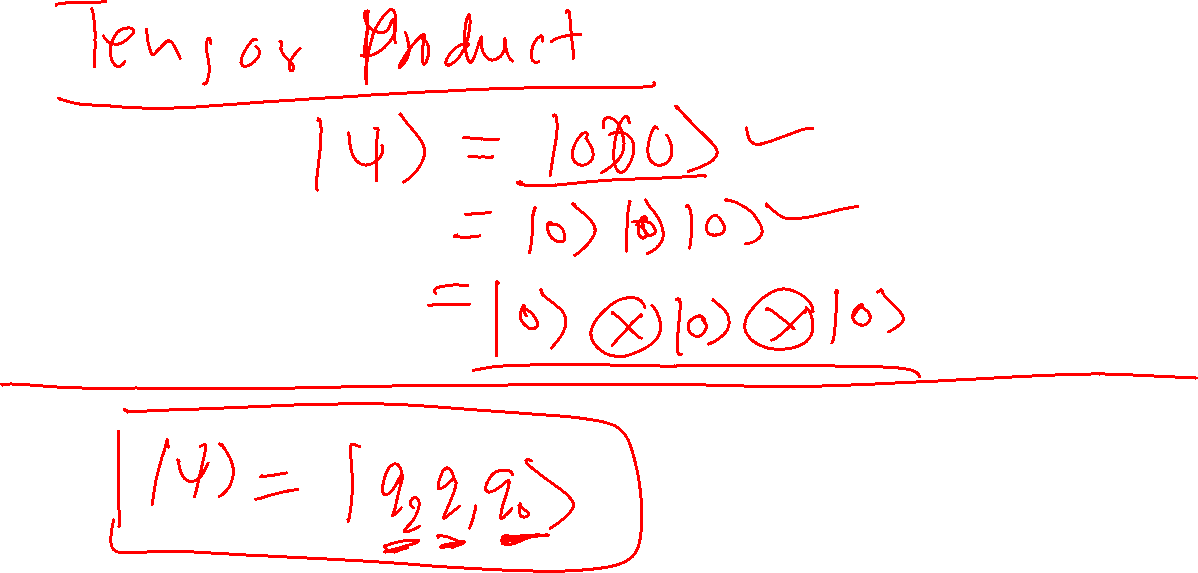 Tensor Product
|ψ⟩ = |000⟩ ✓
= |0⟩ |0⟩ |0⟩ ✓
= |0⟩ ⊗ |0⟩ ⊗ |0⟩
|ψ⟩ = |q₂ q₁ q₀⟩